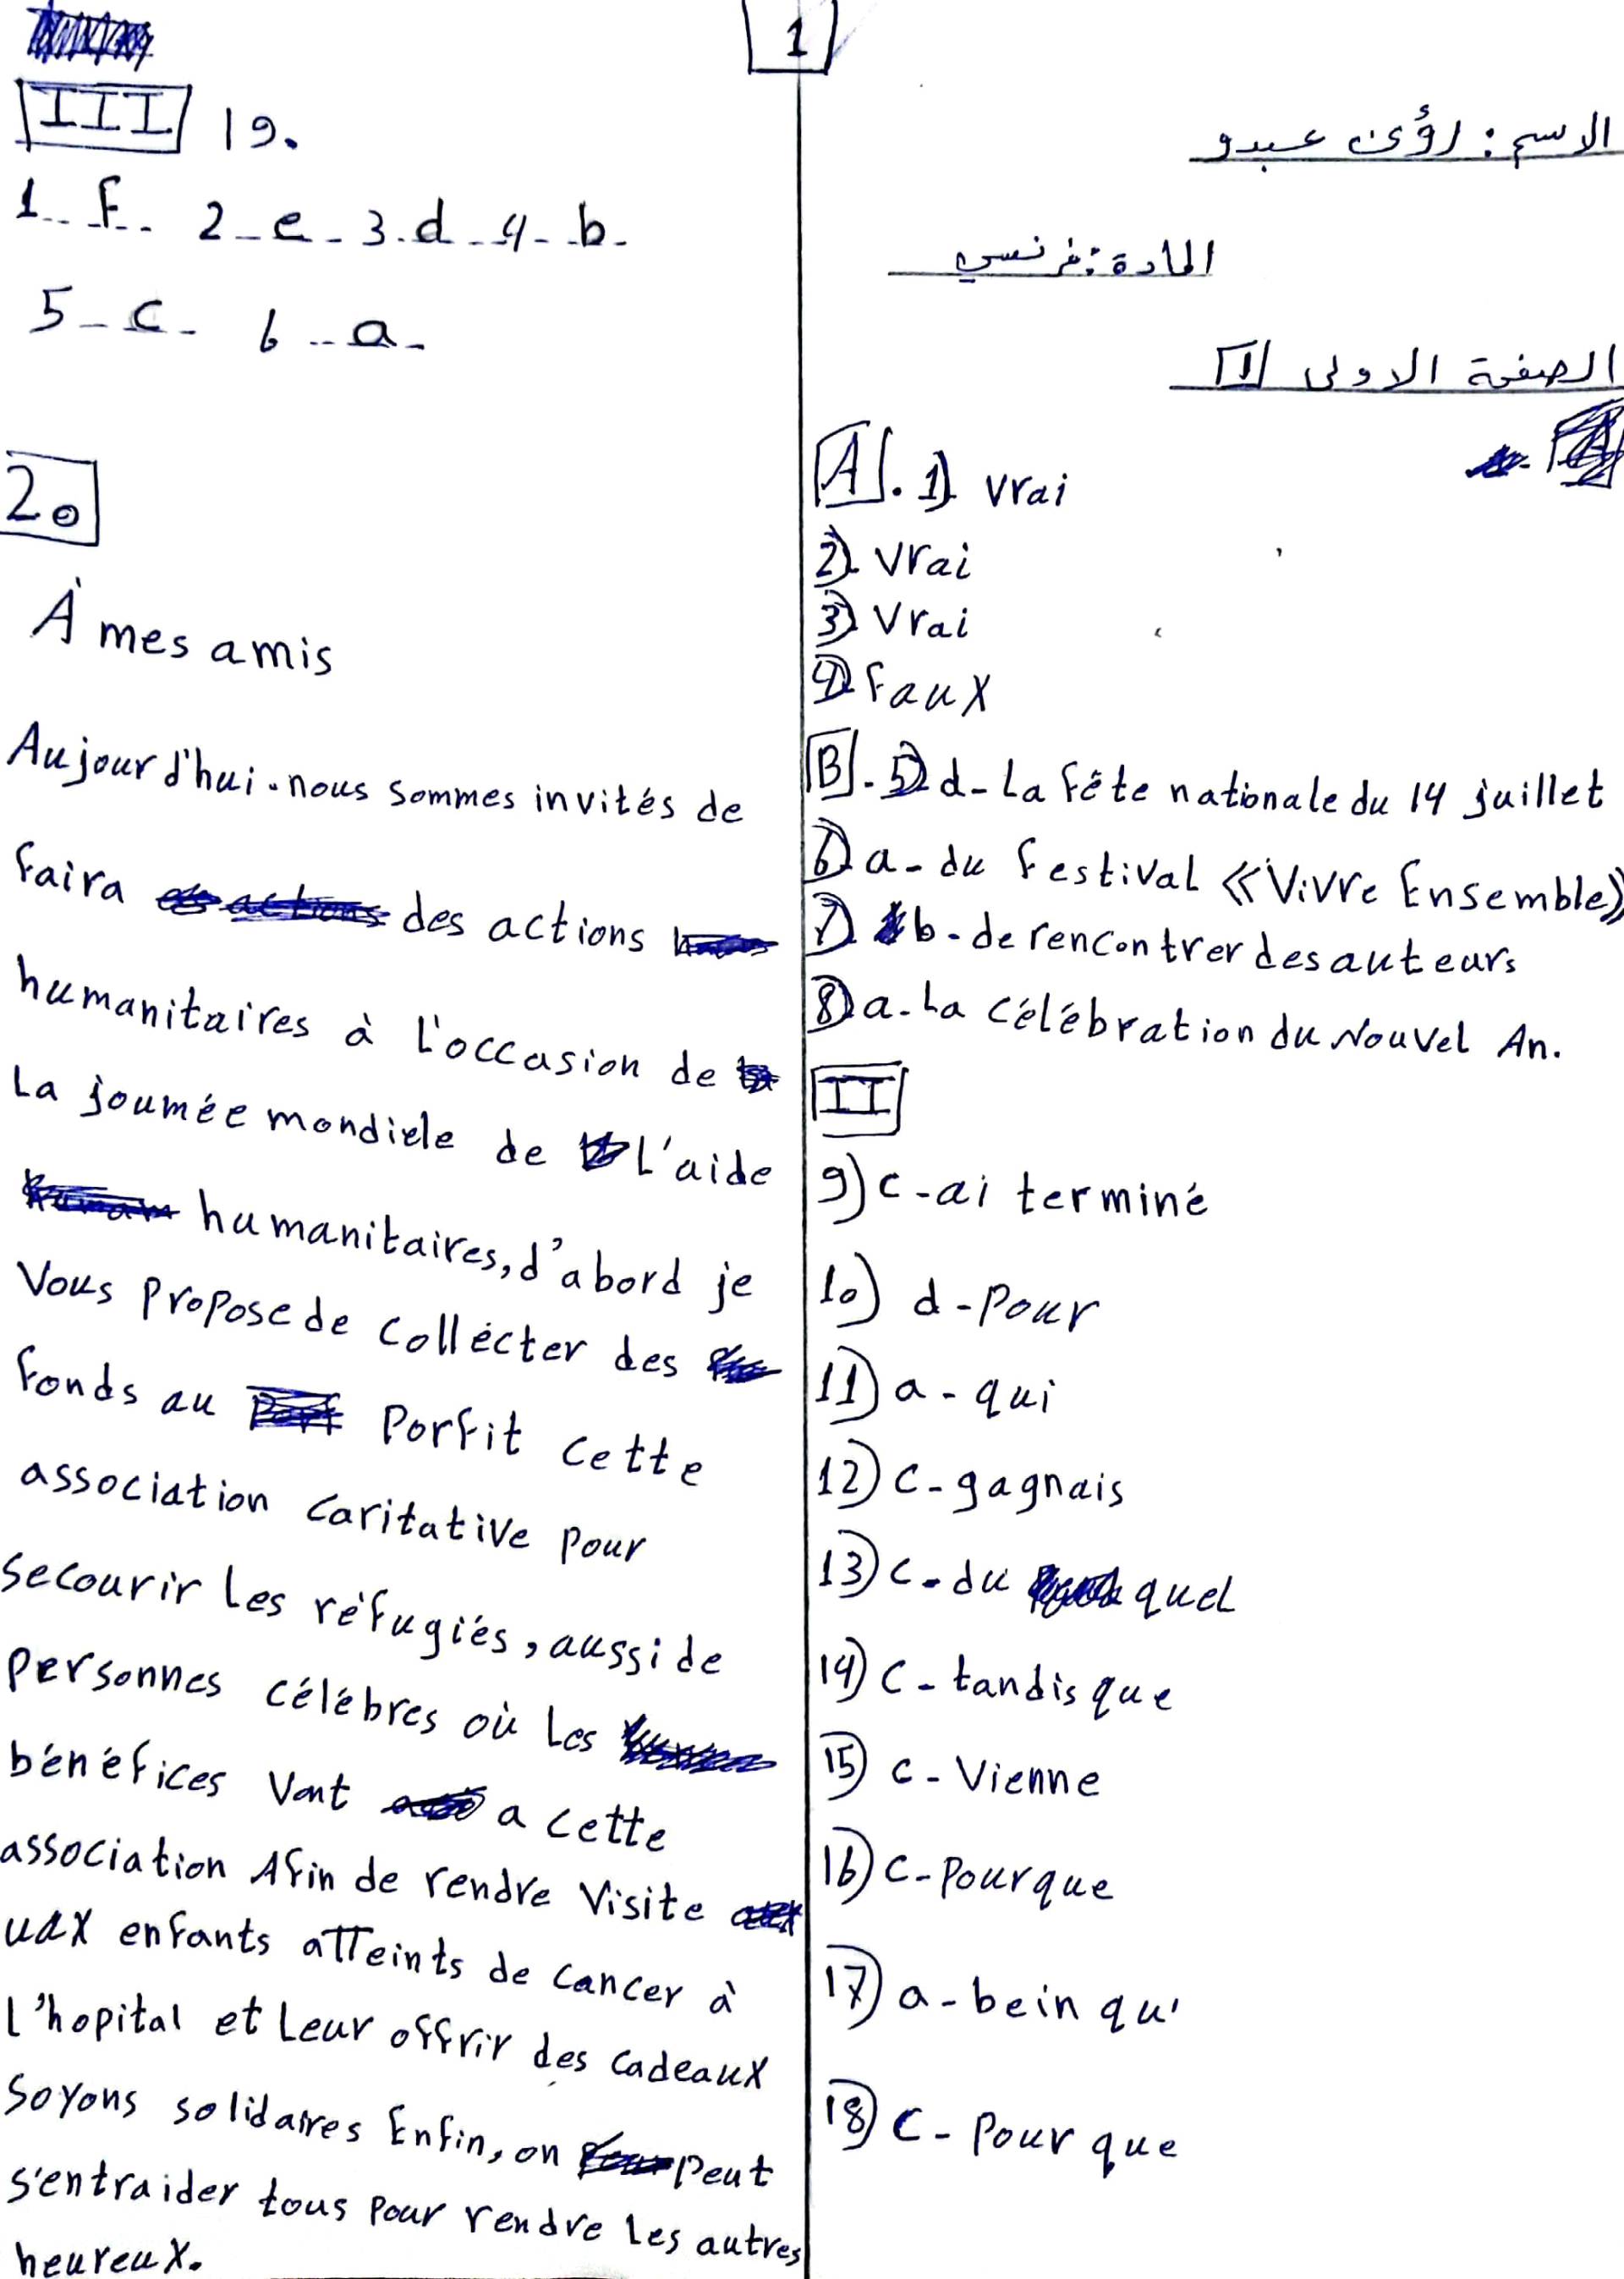 1
الاسم : رؤى عبدو
المادة : فرنسي
الصفحة الاولى 1
A. 1) vrai
2) vrai
3) vrai
4) faux
B. 5) d- La fête nationale du 14 juillet
6) a- du festival «Vivre Ensemble»
7) b- de rencontrer des auteurs
8) a- La célébration du Nouvel An.
II
9) c-ai terminé
10) d-pour
11) a-qui
12) c-gagnais
13) c-du quel
14) c-tandis que
15) c-Vienne
16) c-pourque
17) a-bein qu'
18) c-pour que
III 19.
1-f- 2-e-3-d-4-b-
5-c- 6-a-
20
À mes amis
Aujourd'hui. nous sommes invités de
faira des actions
humanitaires à l'occasion de
La joumée mondiele de L'aide
humanitaires, d'abord je
Vous propose de collécter des
fonds au Porfit cette
association caritative pour
secourir les réfugiés, aussi de
personnes célébres où les
bénéfices vont a cette
association Afin de rendre visite
uax enfants atteints de cancer à
l'hopital et leur offrir des cadeaux
Soyons solidaires Enfin, on peut
s'entraider tous pour rendre les autres
heureux.